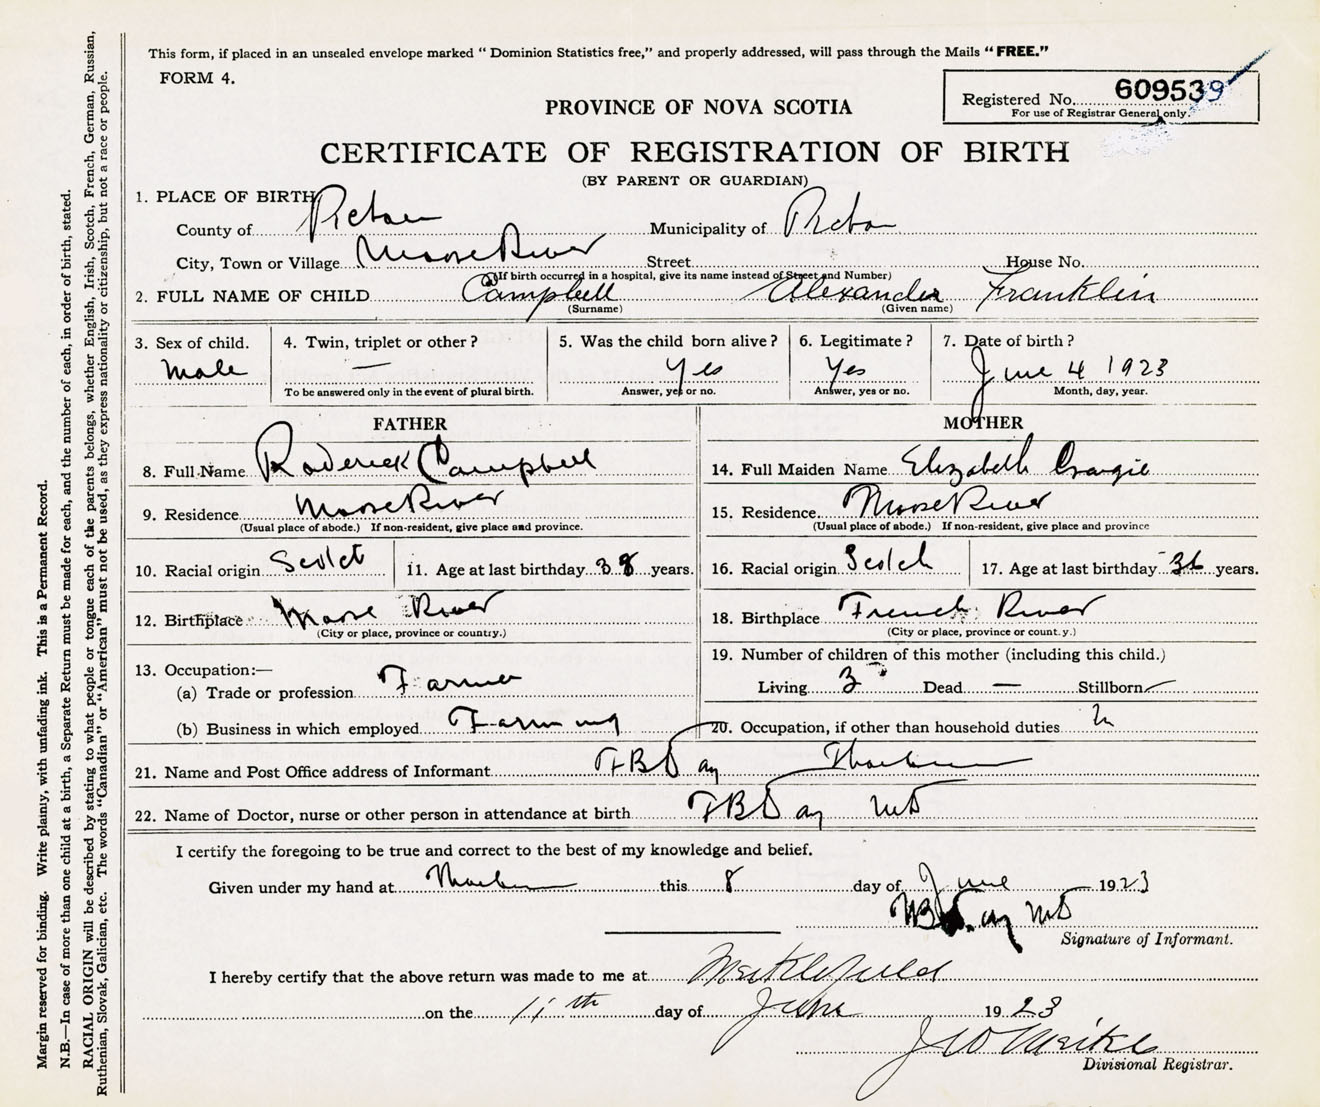 This form, if placed in an unsealed envelope marked “ Dominion Statistics free,” and properly addressed, will pass through the Mails “ FREE.”
FORM 4.
Registered No. 609539
For use of Registrar General only.
PROVINCE OF NOVA SCOTIA
CERTIFICATE OF REGISTRATION OF BIRTH
(BY PARENT OR GUARDIAN)
1. PLACE OF BIRTH
County of Pictou Municipality of Pictou
City, Town or Village Moose River Street House No.
(If birth occurred in a hospital, give its name instead of Street and Number)
2. FULL NAME OF CHILD Campbell Alexander Franklin
(Surname) (Given name)
3. Sex of child. 4. Twin, triplet or other ? 5. Was the child born alive ? 6. Legitimate ? 7. Date of birth ?
Male — Yes Yes June 4 1923
To be answered only in the event of plural birth. Answer, yes or no. Answer, yes or no. Month, day, year.
FATHER MOTHER
8. Full Name Roderick Campbell 14. Full Maiden Name Elizabeth Craigie
9. Residence Moose River 15. Residence. Moose River
(Usual place of abode.) If non-resident, give place and province. (Usual place of abode.) If non-resident, give place and province
10. Racial origin Scotch 11. Age at last birthday 38 years. 16. Racial origin Scotch 17. Age at last birthday 36 years.
12. Birthplace Moose River 18. Birthplace French River
(City or place, province or country.) (City or place, province or count.y.)
13. Occupation:— 19. Number of children of this mother (including this child.)
(a) Trade or profession Farmer Living 3 Dead — Stillborn —
(b) Business in which employed Farming 20. Occupation, if other than household duties
21. Name and Post Office address of Informant Day Thorburn
22. Name of Doctor, nurse or other person in attendance at birth Day MD
I certify the foregoing to be true and correct to the best of my knowledge and belief.
Given under my hand at Thorburn this 8 day of June 1923
Day MD
Signature of Informant.
I hereby certify that the above return was made to me at Meiklefield
on the 11th day of June 1923
J W Meikle
Divisional Registrar.
Margin reserved for binding. Write plainly, with unfading ink. This is a Permanent Record.
N.B.—In case of more than one child at a birth, a Separate Return must be made for each, and the number of each, in order of birth, stated.
RACIAL ORIGIN will be described by stating to what people or tongue each of the parents belongs, whether English, Irish, Scotch, French, German, Russian,
Ruthenian, Slovak, Galician, etc. The words “Canadian” or “American” must not be used, as they express nationality or citizenship, but not a race or people.